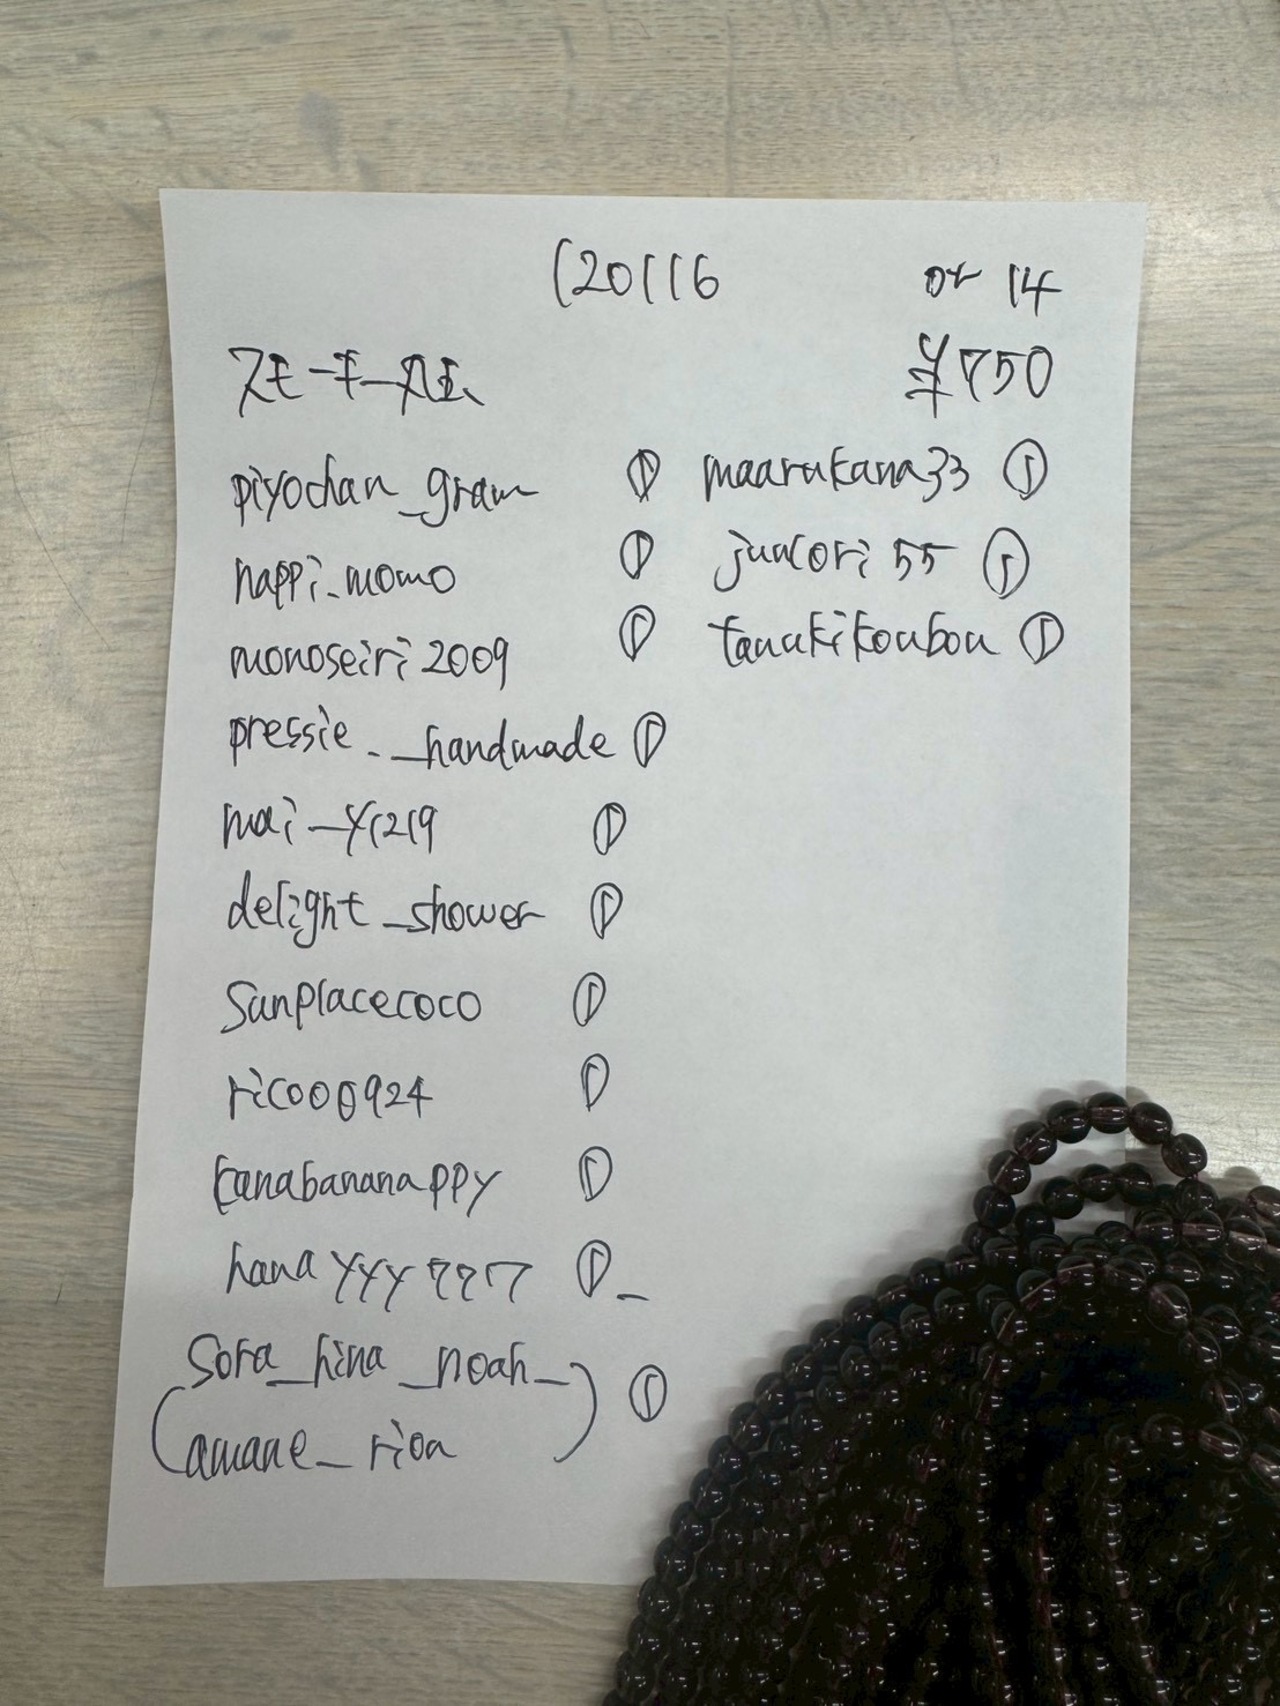 120116 or 14
¥750
piyochan_gram ①
happi_momo ①
monoseiri2009 ①
pressie.__handmade ①
mai_y1219 ①
delight_shower ①
sunplacecoco ①
rico00924 ①
kanabananappy ①
hanayyy777 ①_
(sora_hina_noah_
amane_rion) ①
maarukana33 ①
juncori55 ①
tanukikoubou ①